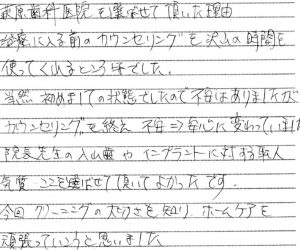 萩原歯科医院を選ばせて頂いた理由
治療に入る前のカウンセリングを沢山の時間を
使ってくれるところ でした。
当然 初めましての状態でしたので不安はありましたが
カウンセリングを終え 不安⇒安心に変わっていました
院長先生の人山量や インプラントに対する職人
気質 ここを選ばせて頂いてよかったです。
今回 クリーニングの大切さを知り ホームケアを
頑張っていこうと思いました